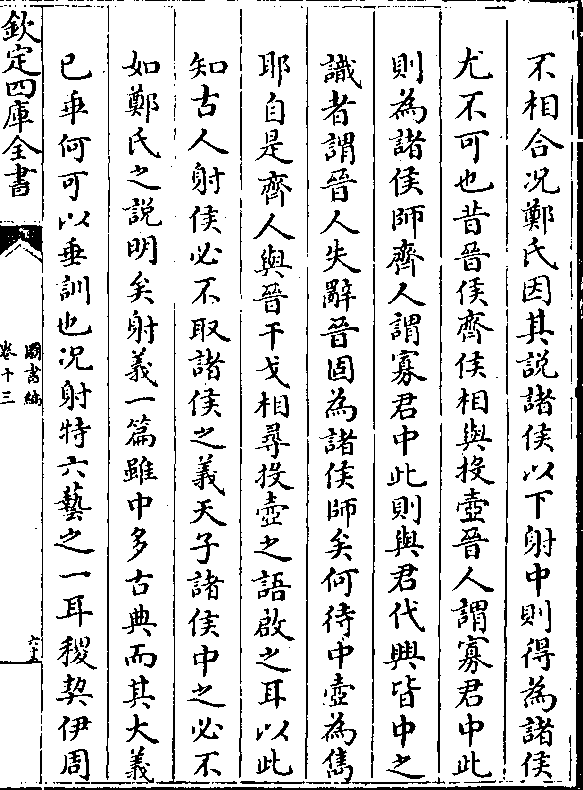 不相合況鄭氏因其說諸侯以下射中則得為諸侯
尤不可也昔晉侯齊侯相與投壺晉人謂寡君中此
則為諸侯師齊人謂寡君中此則與君代興皆中之
識者謂晉人失辭晉固為諸侯師矣何待中壺為雋
耶自是齊人與晉干戈相尋投壺之語啟之耳以此
知古人射侯必不取諸侯之義天子諸侯中之必不
如鄭氏之說明矣射義一篇雖中多古典而其大義
已乖何可以垂訓也况射特六藝之一耳稷契伊周
欽定四庫全書
圖書編
卷十三
六十五